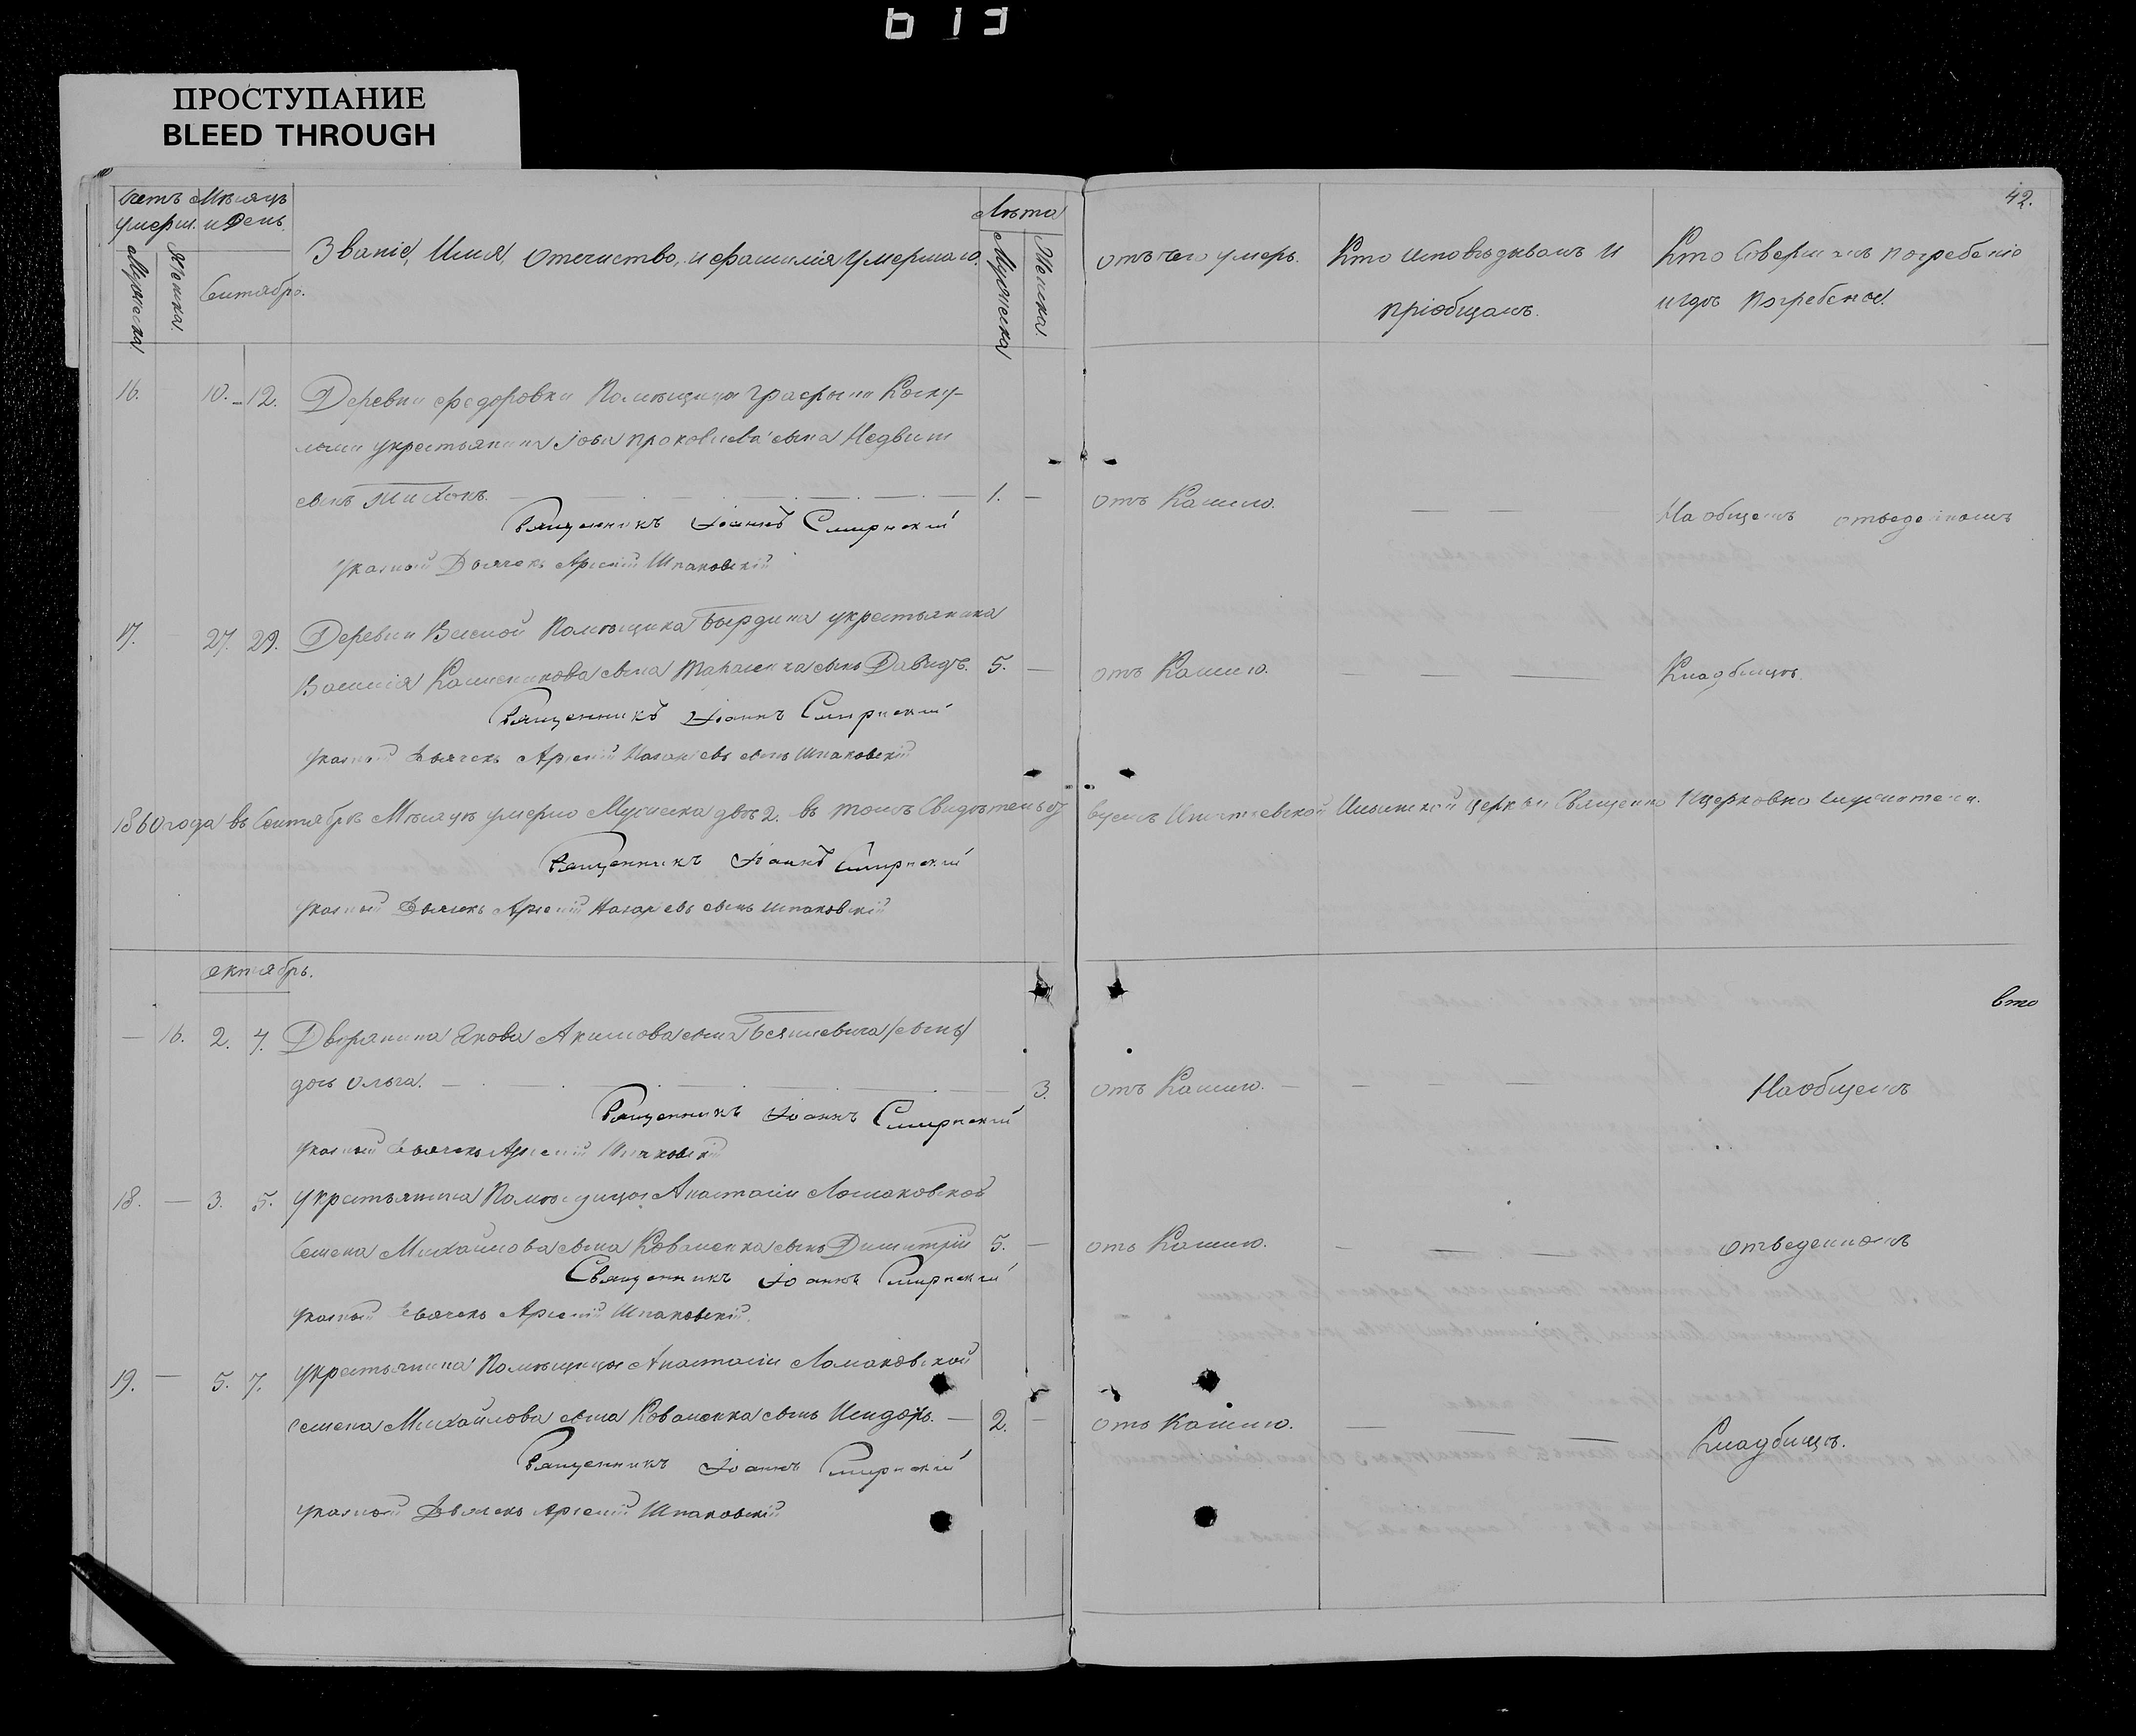 613
ПРОСТУПАНИЕ
BLEED THROUGH
42.
Счетъ умерш. Мѣсяцъ и День.
Мужеска Женска
Сентябрь.
Званіе, Имя, Отечиство, и фамилія Умершаго.
Лѣта
Мужеска Женска
Отъ чего умеръ.
Кто исповѣдывалъ и пріобщалъ.
Кто Совершалъ погребеніе и гдѣ погребены.
16. 10. 12. Деревни Федоровки Помѣщицы Графини
укрестьянина Іова сына
сынъ Тихонъ. 1. — отъ Кашлю. — — — На общемъ отведенномъ
Священникъ Іоаннъ Смирнскій
Указный Дьячекъ Арсеній Шпаковскій
17. 27. 29. Деревни Помѣщика укрестьянина
Василія сына сынъ Давидъ. 5. — отъ Кашлю. — — — Кладбищѣ.
Священникъ Іоаннъ Смирнскій
Указный Дьячекъ Арсеній Назаріевъ сынъ Шпаковскій
1860 года въ Сентябрѣ Мѣсяцѣ умерло Мужеска два 2. въ томъ Свидѣтельствуемъ Церкви Священно и церковно служители.
Священникъ Іоаннъ Смирнскій
Указный Дьячекъ Арсеній Назаріевъ сынъ Шпаковскій
октябрь.
вто
— 16. 2. 4. Дворянина Якова Акимова сына /сынъ/
дочь Ольга. 3. отъ Кашлю. — — — На общемъ
Священникъ Іоаннъ Смирнскій
Указный Дьячекъ Арсеній Шпаковскій
18. — 3. 5. Укрестьянина Помѣщицы Анастасіи Ломаковской
Семена Михайлова сына Коваленка сынъ Димитрій 5. — отъ Кашлю. — — — отведенномъ
Священникъ Іоаннъ Смирнскій
Указный Дьячекъ Арсеній Шпаковскій.
19. — 5. 7. Укрестьянина Помѣщицы Анастасіи Ломаковской
Семена Михайлова сына Коваленка сынъ Исидоръ. — 2. — отъ Кашлю. — — — Кладбищѣ.
Священникъ Іоаннъ Смирнскій
Указный Дьячекъ Арсеній Шпаковскій